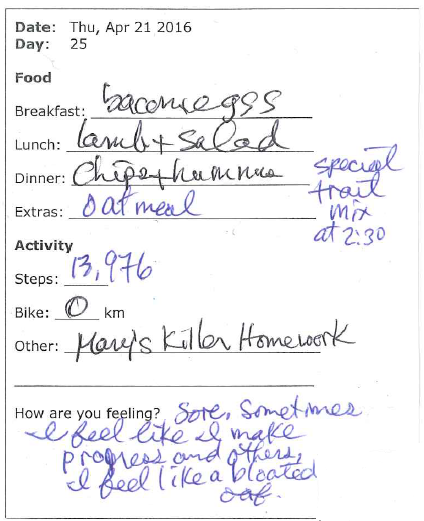 Date: Thu, Apr 21 2016
Day: 25
Food
Breakfast: bacon & eggs
Lunch: lamb + salad
Dinner: Chips + hummus
Extras: oatmeal
special
trail
mix
at 2:30
Activity
Steps: 13,976
Bike: 0 km
Other: Mary's Killer Homework
How are you feeling? Sore, Sometimes
I feel like I make
progress and others,
I feel like a bloated
oaf.